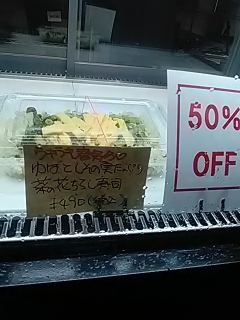 ゆばとしその実たっぷり
菜の花ちらし寿司
¥490
50%
OFF